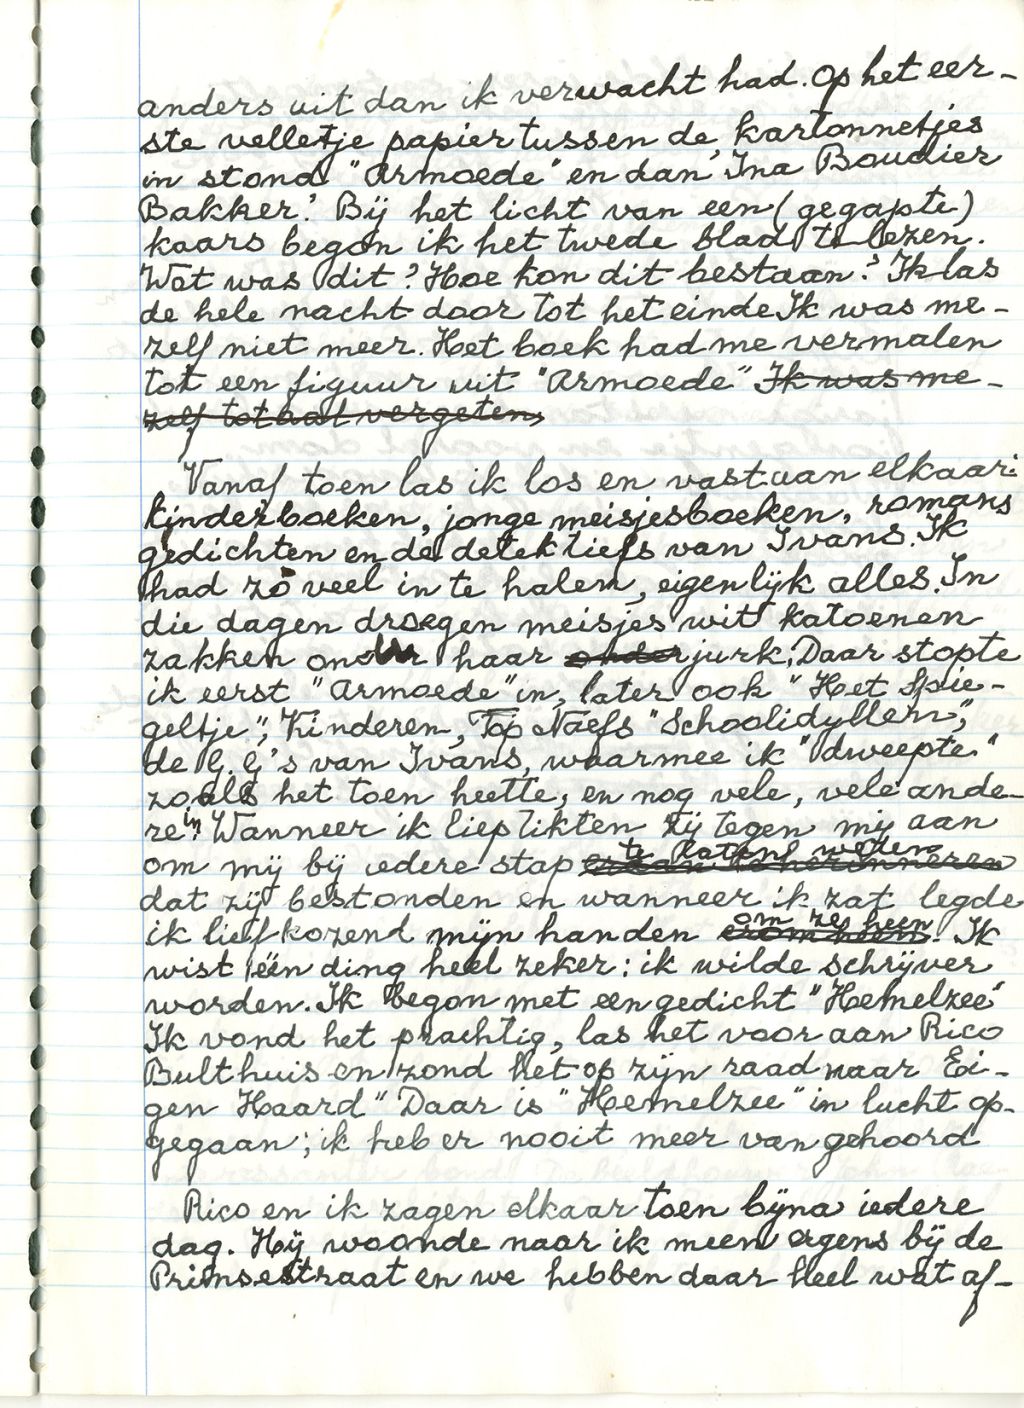 anders uit dan ik verwacht had. Op het eer-
ste velletje papier tussen de kartonnetjes
in stond "Armoede" en dan, Ina Boudier
Bakker! Bij het licht van een (gegapte)
kaars begon ik het twede blad te lezen.
Wat was dit? Hoe kon dit bestaan? Ik las
de hele nacht door tot het einde Ik was me-
zelf niet meer. Het boek had me vermalen
tot een figuur uit "Armoede" Ik was me-
zelf totaal vergeten,
Vanaf toen las ik los en vast aan elkaar:
kinderboeken, jonge meisjesboeken, romans
gedichten en de detektiefs van Ivans. Ik
had zó veel in te halen, eigenlijk alles. In
die dagen droegen meisjes witt katoenen
zakken onder haar onder jurk; Daar stopte
ik eerst "Armoede" in, later ook "Het Spie-
geltje", Kinderen, Top Naefs "Schoolidyllen",
de G.G.'s van Ivans, waarmee ik "dweepte"
zoals het toen heette, en nog vele, vele ande-
re in. Wanneer ik liep tikten zij tegen mij aan
om mij bij iedere stap te laten weden
dat zij bestonden en wanneer ik zat legde
ik liefkozend mijn handen om ze heen. Ik
wist één ding heel zeker: ik wilde schrijver
worden. Ik begon met een gedicht "Hemelzee"
Ik vond het prachtig, las het voor aan Rico
Bulthuis en zond het op zijn raad naar Ei-
gen Haard" Daar is "Hemelzee" in lucht op-
gegaan; ik heb er nooit meer van gehoord
Rico en ik zagen elkaar toen bijna iedere
dag. Hij woonde naar ik meen ergens bij de
Prinsestraat en we hebben daar heel wat af-